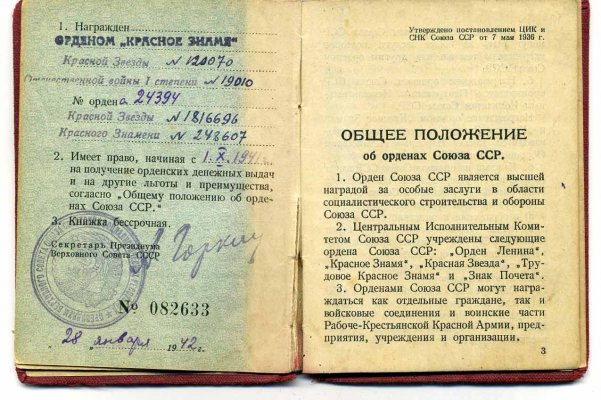 1. Награжден
ОРДЕНОМ „КРАСНОЕ ЗНАМЯ“
Красной Звезды № 120070
Отечественной войны I степени № 19010
№ ордена 24394
Красной Звезды № 1816696
Красного Знамени № 248607
2. Имеет право, начиная с 1.X.1941 г.
на получение орденских денежных выдач
и на другие льготы и преимущества,
согласно „Общему положению об орде-
нах Союза ССР.“
3. Книжка бессрочная.
Секретарь Президиума
Верховного Совета СССР
А Горкин
№ 082633
„28 января 1942 г.
Утверждено постановлением ЦИК и
СНК Союза ССР от 7 мая 1936 г.
ОБЩЕЕ ПОЛОЖЕНИЕ
об орденах Союза ССР.
1. Орден Союза ССР является высшей
наградой за особые заслуги в области
социалистического строительства и обороны
Союза ССР.
2. Центральным Исполнительным Коми-
тетом Союза ССР учреждены следующие
ордена Союза ССР: „Орден Ленина“,
„Красное Знамя“, „Красная Звезда“, „Тру-
довое Красное Знамя“ и „Знак Почета“.
3. Орденами Союза ССР могут наг-
раждаться как отдельные граждане, так и
войсковые соединения и воинские части
Рабоче-Крестьянской Красной Армии, пред-
приятия, учреждения и организации.
3